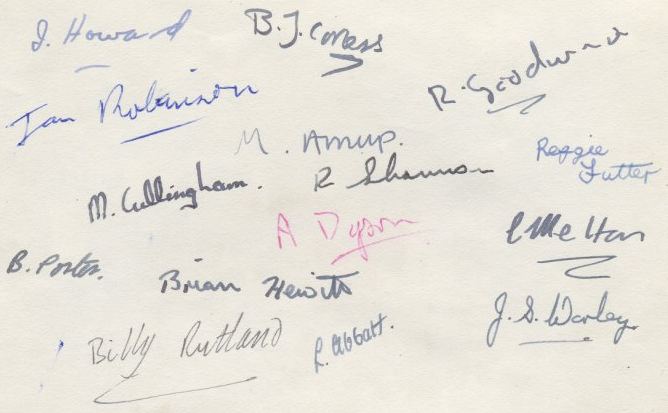 I. Howard
B. J. Cross
R. Goodwin
Ian Robinson
M. Amup.
Reggie
Futter
M. Cullingham.
R Shannon
A Dyson
C Melton
B. Porter.
Brian Hewitt
J. S. Worley
Billy Rutland
R. Abbott.